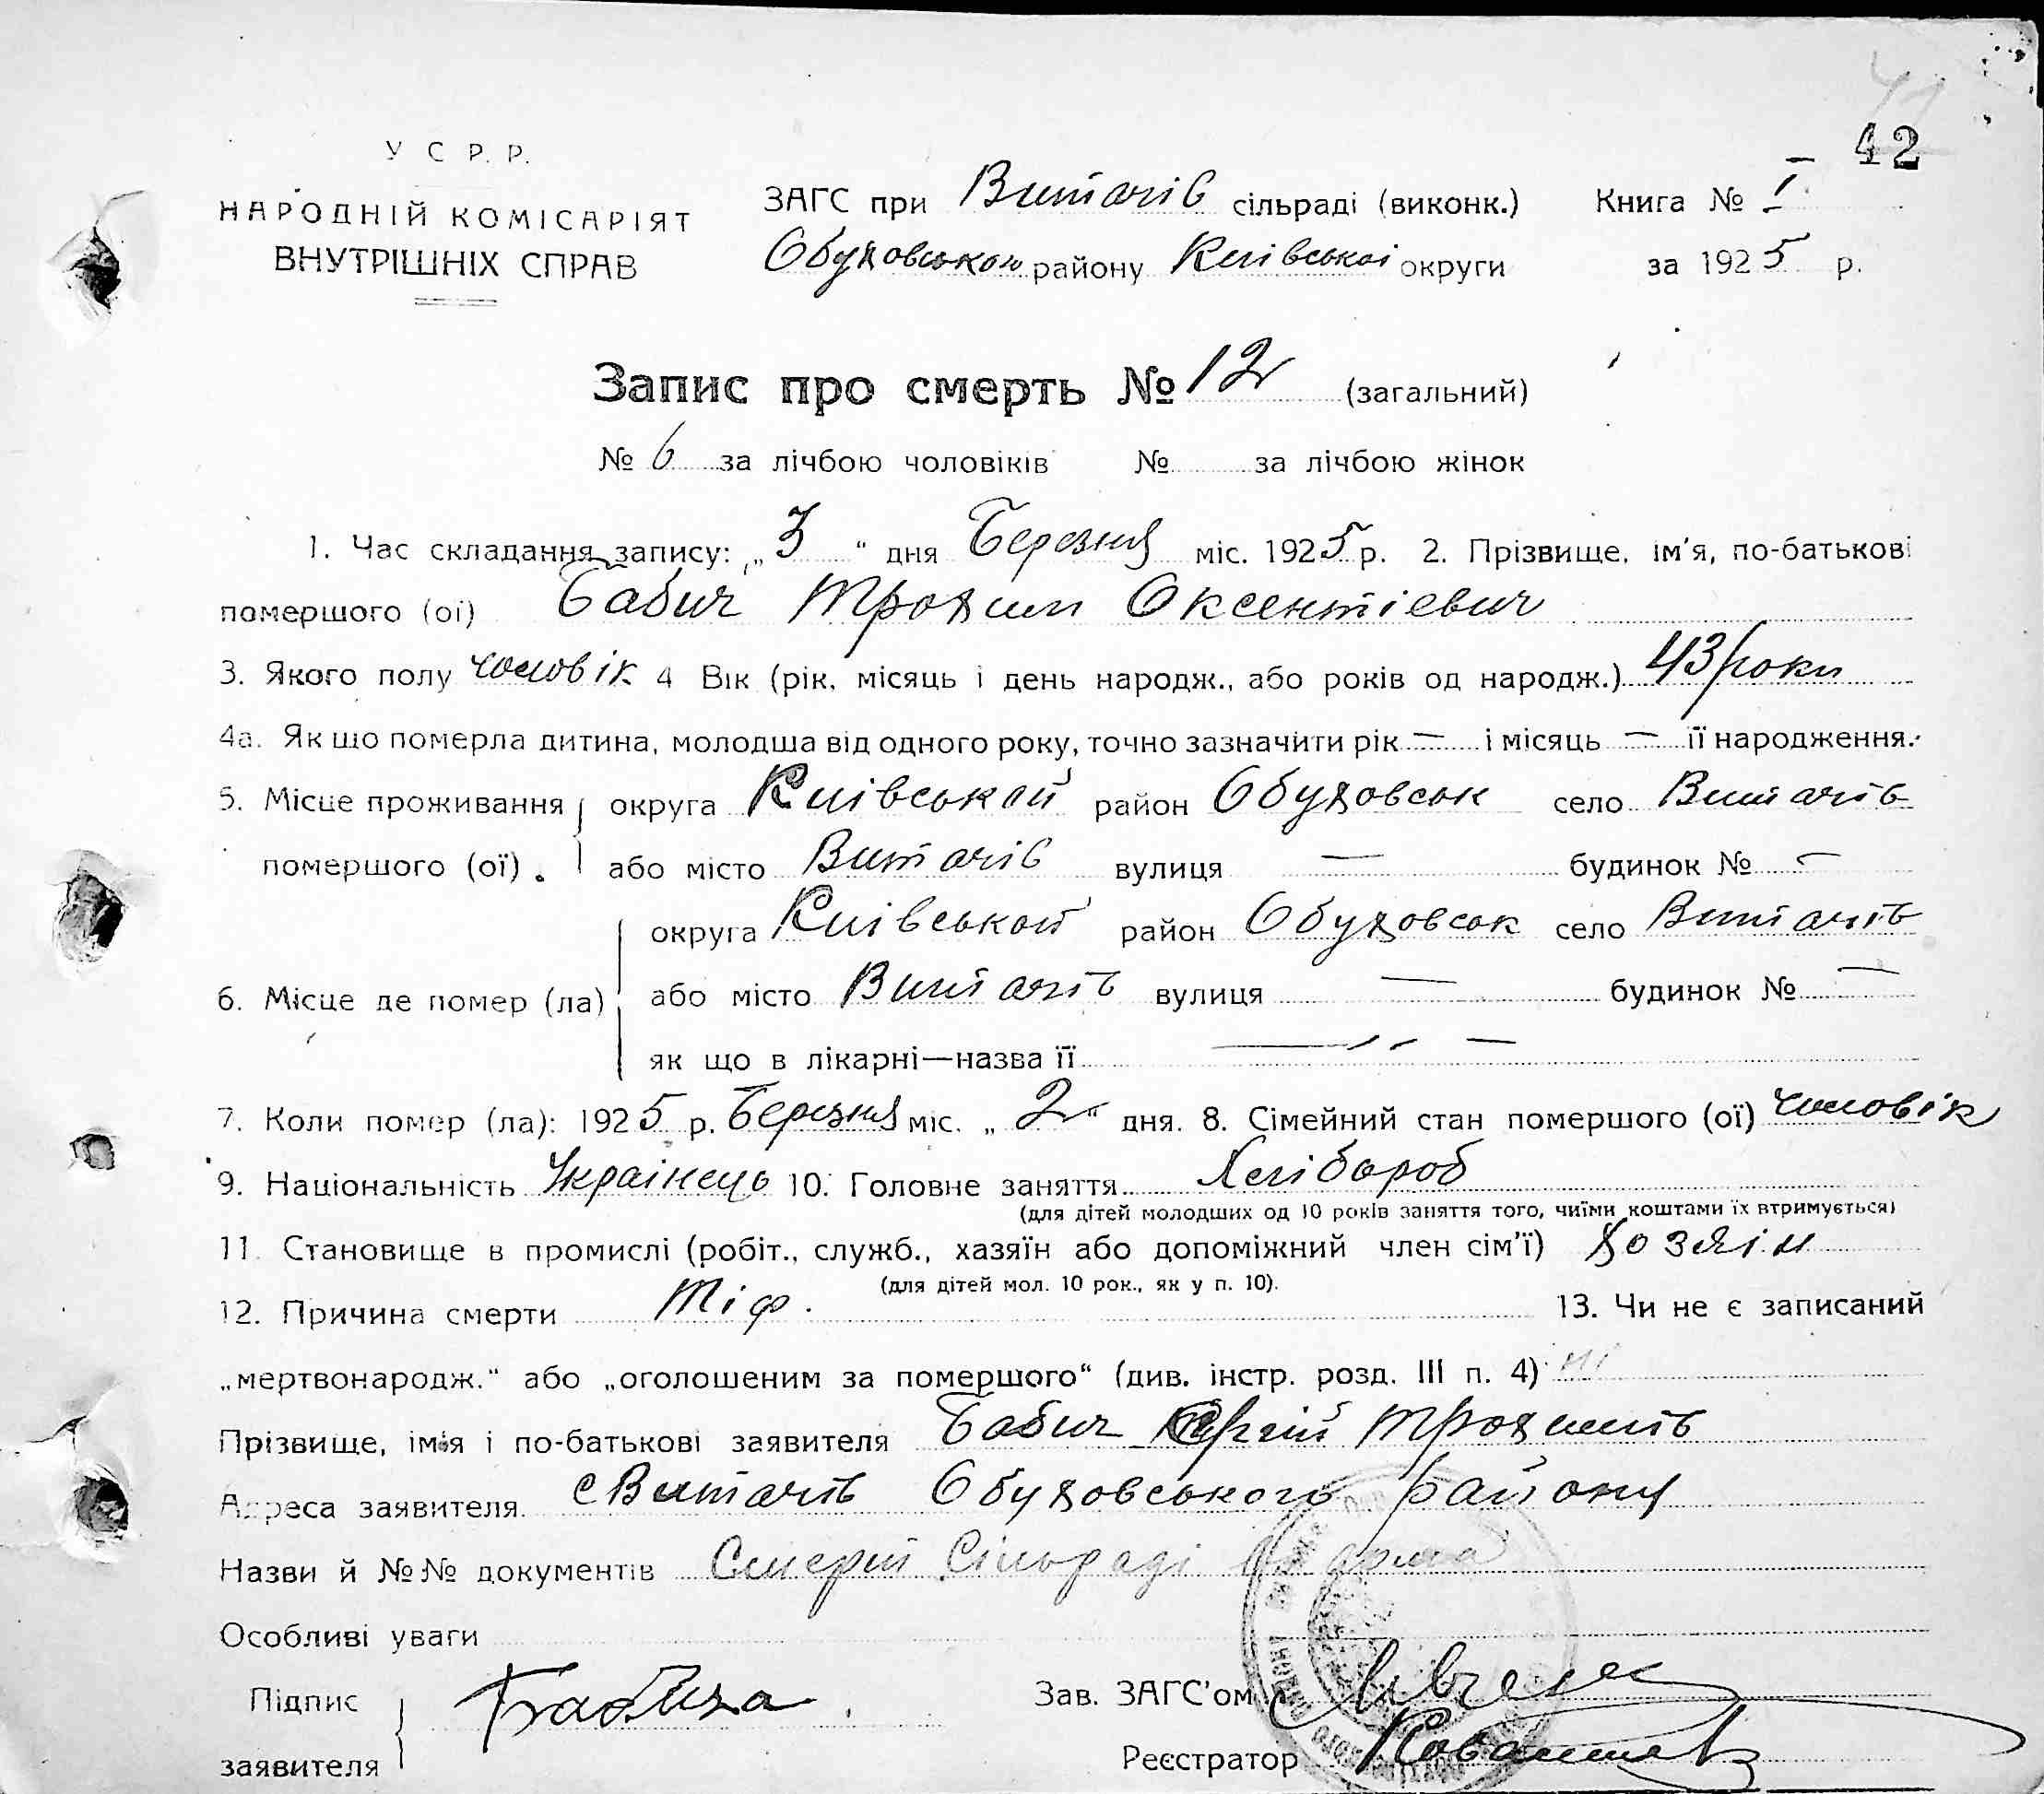 42
У С Р. Р.
НАРОДНІЙ КОМІСАРІЯТ
ВНУТРІШНІХ СПРАВ
ЗАГС при Витачів сільраді (виконк.) Книга № I
Обуховською району Київської округи за 1925 р.
Запис про смерть № 12 (загальний)
№ 6 за лічбою чоловіків № за лічбою жінок
1. Час складання запису: „3“ дня Березня міс. 1925 р. 2. Прізвище, ім'я, по-батькові
помершого (ої) Бабич Трохим Оксентіевич
3. Якого полу чоловік 4 Вік (рік, місяць і день народж., або років од народж.) 43 роки
4а. Як що померла дитина, молодша від одного року, точно зазначити рік — і місяць — її народження.
5. Місце проживання округа Київської район Обуховськ село Витачів
помершого (ої). або місто Витачів вулиця — будинок № —
округа Київської район Обуховськ село Витачів
6. Місце де помер (ла) або місто Витачів вулиця — будинок № —
як що в лікарні—назва її — „ —
7. Коли помер (ла): 1925 р. Березня міс. „2“ дня. 8. Сімейний стан помершого (ої) чоловік
9. Національність Українець 10. Головне заняття Хлібороб
(для дітей молодших од 10 років заняття того, чиїми коштами їх втримується)
11. Становище в промислі (робіт., служб., хазяїн або допоміжний член сім'ї) хозяін
(для дітей мол. 10 рок., як у п. 10).
12. Причина смерти Тіф. 13. Чи не є записаний
„мертвонародж.“ або „оголошеним за помершого“ (див. інстр. розд. III п. 4) ні
Прізвище, імія і по-батькові заявителя Бабич Сергій Трохимів
Адреса заявителя. с Витачів Обуховського району
Назви й №№ документів Смерті Сільраді
Особливі уваги
Підпис Бабича Зав. ЗАГС'ом
заявителя Реєстратор